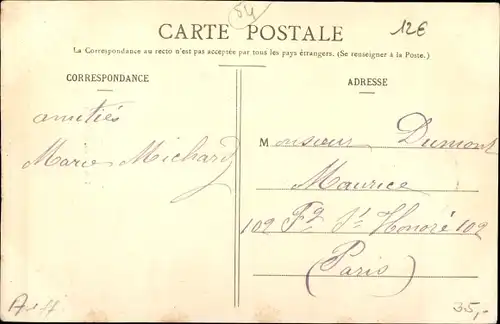 54
12€
CARTE POSTALE
La Correspondance au recto n'est pas acceptée par tous les pays étrangers. (Se renseigner à la Poste.)
CORRESPONDANCE
ADRESSE
amitiés
Marie Michard
Monsieur Dumont
Maurice
102 Fg St Honoré 102
(Paris)
35,-